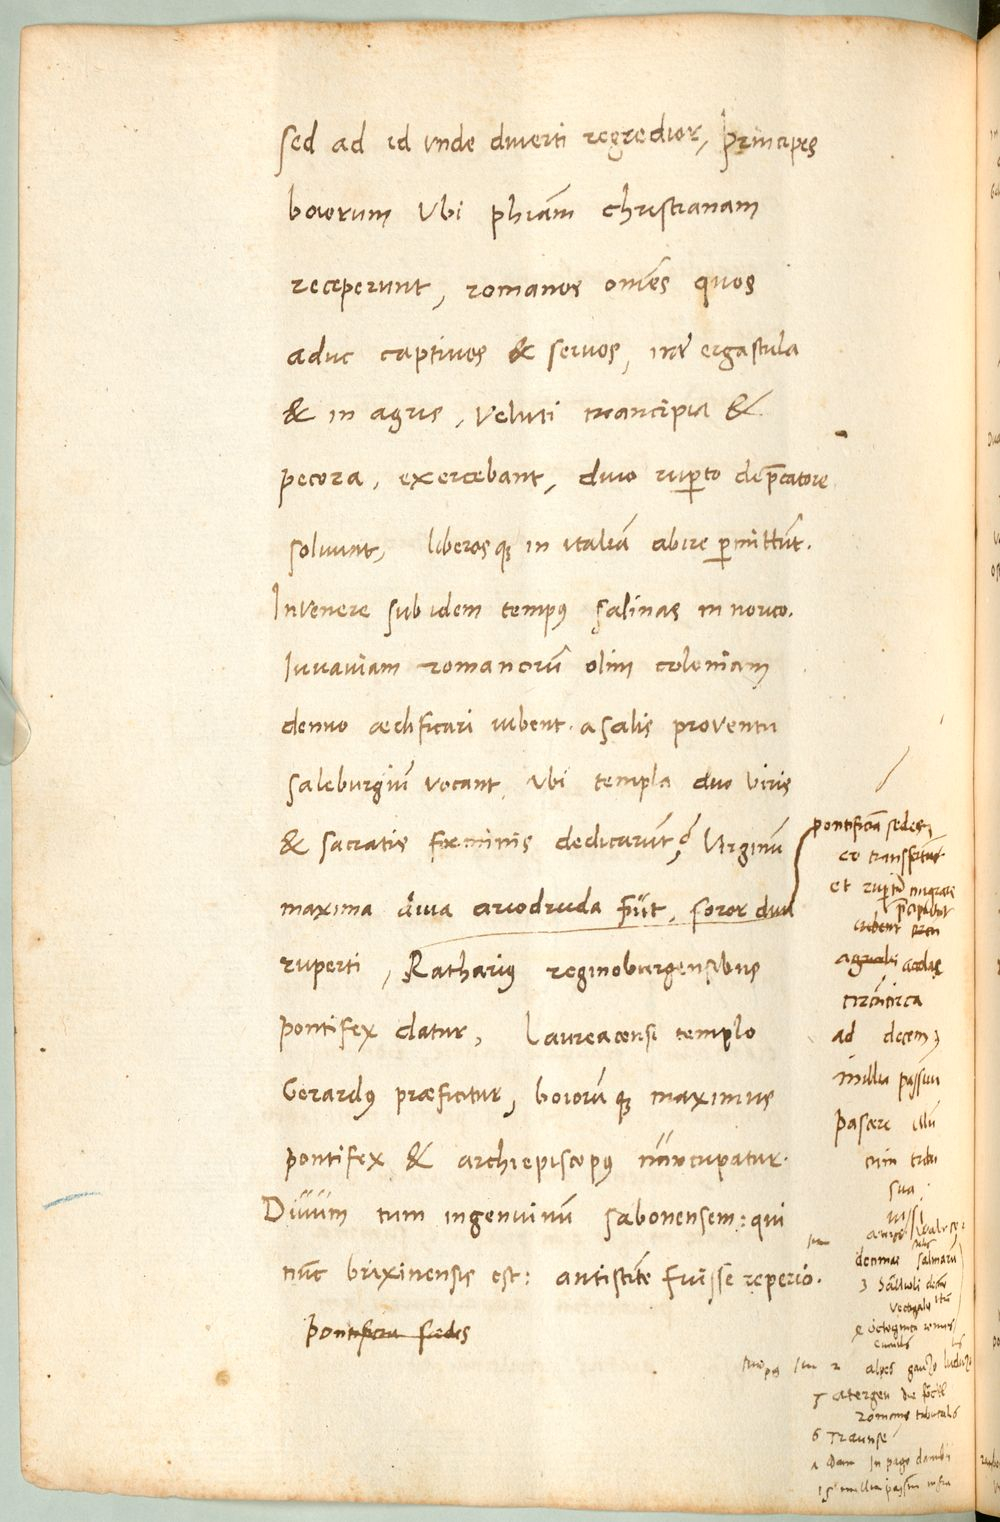 sed ad id vnde diuerti regredior, principes
boiorum Vbi phiam̄ christianam
receperunt, romanos om̄es quos
aduc captiuos & seruos, intr̄ ergastula
& in agris, Veluti mancipia &
pecora, exercebant, diuo rup̱to dep̄catore
soluunt, liberosq̨ in italiā abire p̱mittūt.
Invenere sub idem tempꝰ salinas in norico.
Iuuauiam romanorū olim coloniam
denuo ædificari iubent. a salis proventu
saleburgiū vocant, Vbi templa duo viris
& sacratis fœminis dedicarunt, Virginū
maxima diua ariodruda p̄fuit, soror diui
ruperti, Rathariꝰ reginoburgensibus
pontifex datur, Laureacensi templo
Gerardꝰ præficitur, boiorūq̨ maximus
pontifex & archiepiscopꝰ nūncupatur.
Diuum tum ingenuinū sabonensem: qui
nūc brixinensis est: antistitē fuisse reperio.
pontificia sedes
pontificia sedes,
eo transfertur
et rup̱tū migrare
iubent
agrosq̨
circūcirca
ad decem
millia passuū
pascere illū
cum
sua.
decimas salinarū
alpes
romanos tributales
6 Traunse
in pago
15 millia passuū infra